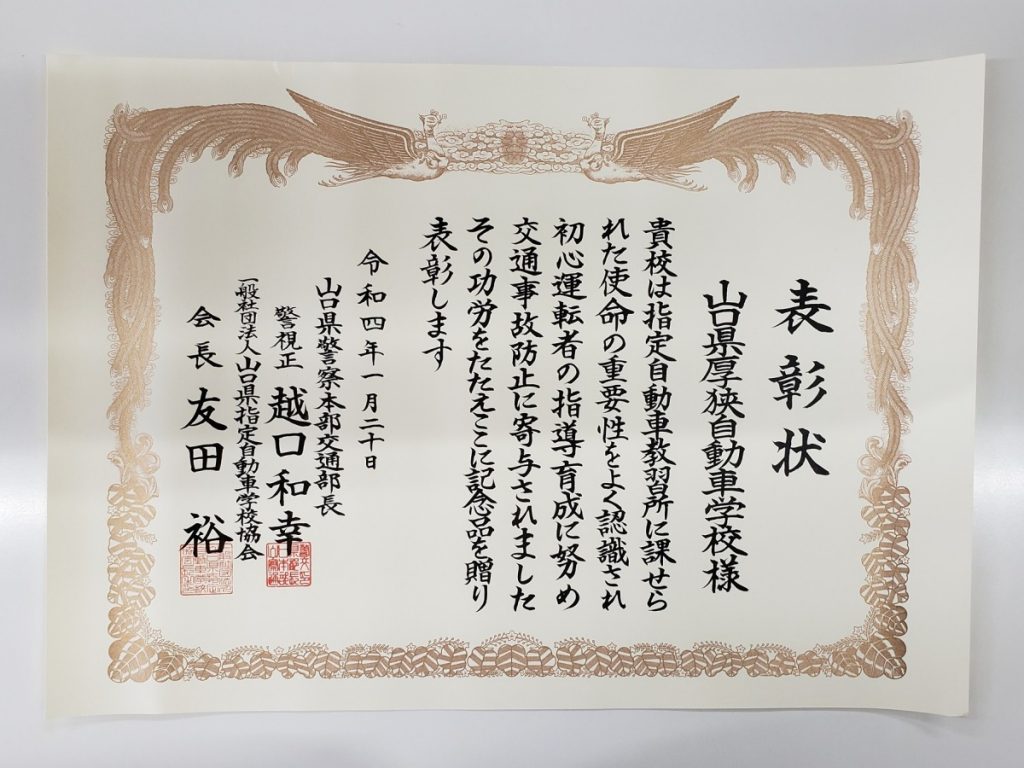 表彰状
山口県厚狭自動車学校様
貴校は指定自動車教習所に課せら
れた使命の重要性をよく認識され
初心運転者の指導育成に努め
交通事故防止に寄与されました
その功労をたたえここに記念品を贈り
表彰します
令和四年一月二十日
山口県警察本部交通部長
警視正 越口和幸
一般社団法人山口県指定自動車学校協会
会長 友田 裕